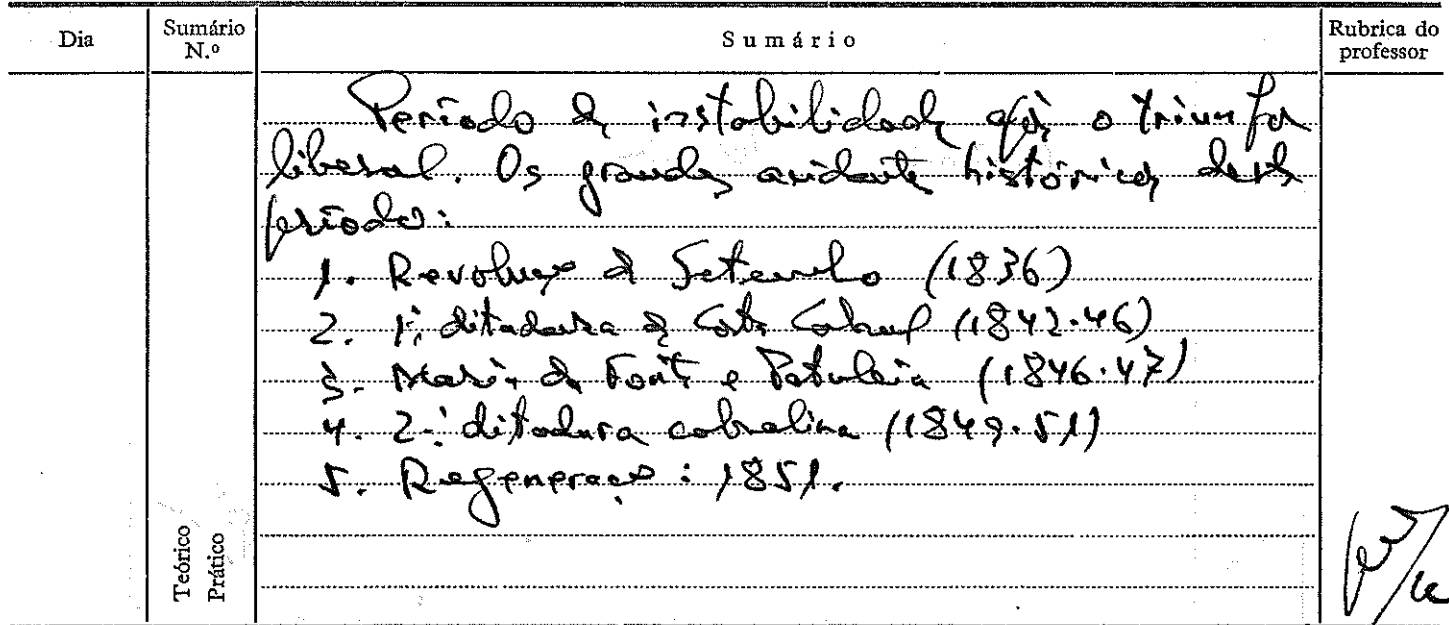 Dia
Sumário N.º
Sumário
Rubrica do professor
Período de instabilidade após o triunfo
liberal. Os grandes acidentes históricos deste
período:
1. Revolução de Setembro (1836)
2. 1ª ditadura de Costa Cabral (1842-46)
3. Maria da Fonte e Patuleia (1846-47)
4. 2ª ditadura cabralina (1849-51)
5. Regeneração: 1851.
Teórico
Prático